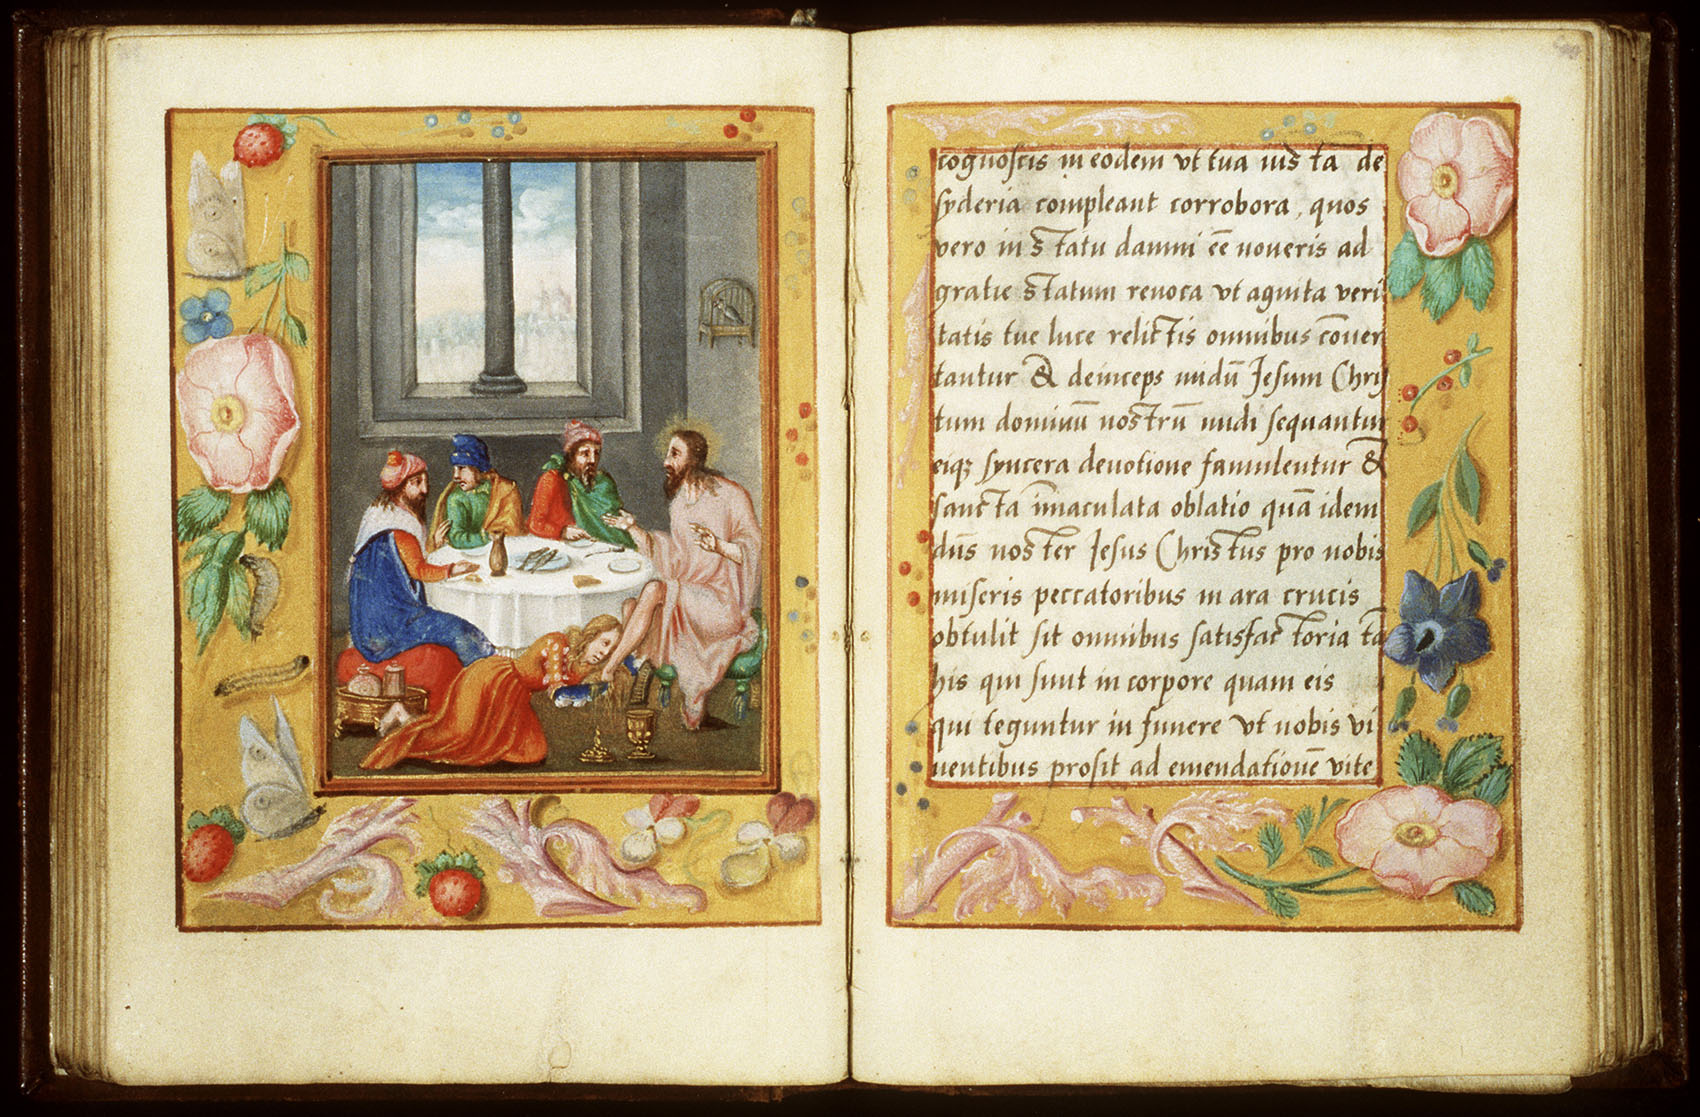 cognoscis in eodem vt tua iusta de
syderia compleant corrobora, quos
vero in statu damni eē noveris ad
gratie statum revoca vt agnita veri
tatis tue luce relictis omnibus cōver
tantur & deinceps nudū Jesum Chris
tum dominū nostrū nudi sequantur
eiqꝫ syncera devotione famulentur &
sancta īmaculata oblatio quā idem
dn̄s noster Jesus Christus pro nobis
miseris peccatoribus in ara crucis
obtulit sit omnibus satisfactoria tā
his qui sunt in corpore quam eis
qui teguntur in funere vt nobis vi
ventibus prosit ad emendationē vite